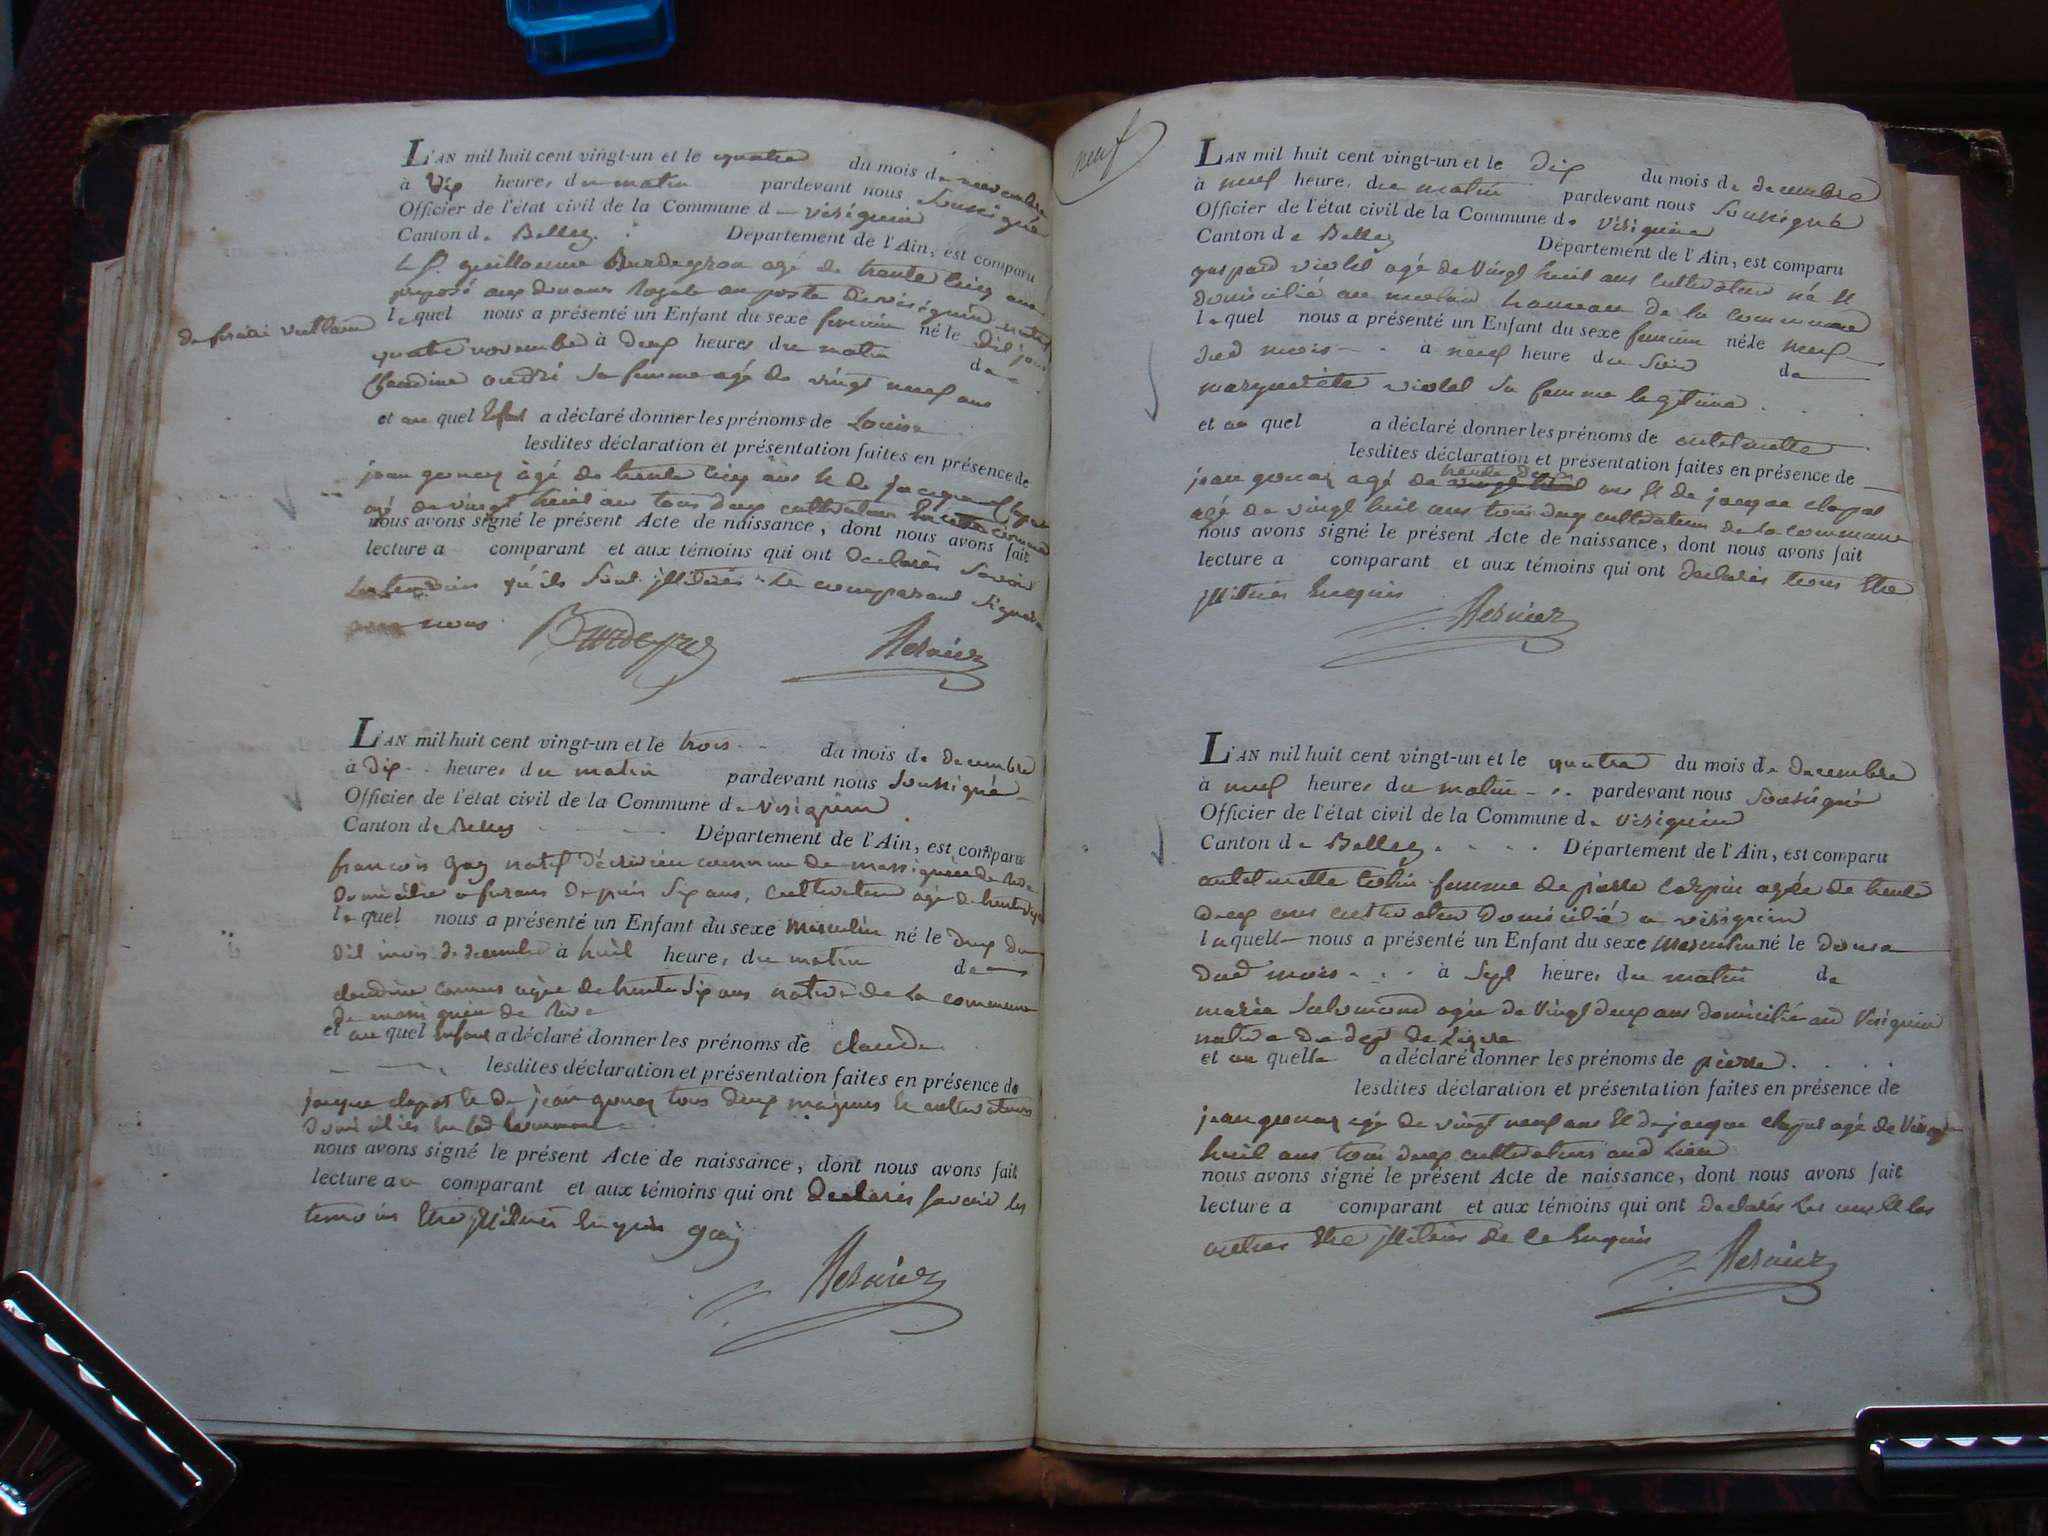 L'AN mil huit cent vingt-un et le quatre du mois de novembre
à dix heures du matin pardevant nous soussigné
Officier de l'état civil de la Commune d virignin
Canton de Belley Département de l'Ain, est comparu
guillaume Burdeyron agé de trente cinq ans
préposé aux douanes Royale au poste de virignin
de forêtié vieillard
lequel nous a présenté un Enfant du sexe feminin né le dit jour
quatre novembre à deux heures du matin de
Claudine sa femme agé de vingt neuf ans
et au quel Enfant a déclaré donner les prénoms de Louise
lesdites déclaration et présentation faites en présence de
jean gonay agé de trente cinq ans et de jacque clapot
agé de vingt huit ans tous deux cultivateurs
nous avons signé le présent Acte de naissance, dont nous avons fait
lecture a comparant et aux témoins qui ont declarés savoir
les temoins qu'ils sont illitérés le comparant signera
nous
L'AN mil huit cent vingt-un et le trois du mois de decembre
à dix heures du matin pardevant nous soussigné
Officier de l'état civil de la Commune de virignin
Canton de Belley Département de l'Ain, est comparu
françois gay natif d'écrivieu commune de massignieu de rive
domicilié a furans depuis six ans, cultivateur agé de trente
lequel nous a présenté un Enfant du sexe masculin né le deux du
dit mois de decembre à huit heures du matin de
claudine agée de trente six ans native de la commune
de massignieu de rive
et au quel enfant a déclaré donner les prénoms de claude
lesdites déclaration et présentation faites en présence de
jacque clapot et de jean gonay tous deux majeurs et cultivateurs
domiciliés en lad commune
nous avons signé le présent Acte de naissance, dont nous avons fait
lecture au comparant et aux témoins qui ont declarés savoir les
temoins etre illitérés enquis gay
neuf
L'AN mil huit cent vingt-un et le dix du mois de decembre
à neuf heures du matin pardevant nous soussigné
Officier de l'état civil de la Commune de virignin
Canton de Belley Département de l'Ain, est comparu
gaspard violet agé de vingt huit ans cultivateur né et
domicilié au hameau de la commune
lequel nous a présenté un Enfant du sexe feminin né le neuf
dud mois à neuf heure du soir de
marguerite violet sa femme legitime
et au quel a déclaré donner les prénoms de antelmette
lesdites déclaration et présentation faites en présence de
jean gonay agé de trente deux ans et de jacque clapot
agé de vingt huit ans tous deux cultivateurs de la commune
nous avons signé le présent Acte de naissance, dont nous avons fait
lecture a comparant et aux témoins qui ont declarés tous etre
illitérés enquis
L'AN mil huit cent vingt-un et le quatre du mois de decembre
à neuf heures du matin pardevant nous soussigné
Officier de l'état civil de la Commune de virignin
Canton de Belley Département de l'Ain, est comparu
antelmette femme de pierre agée de trente
deux ans cultivateur domicilié a virignin
laquelle nous a présenté un Enfant du sexe masculin né le
dud mois à sept heures du matin de
marie salomond agée de vingt deux ans domicilié aud virignin
native du dept de
et au quelle a déclaré donner les prénoms de pierre
lesdites déclaration et présentation faites en présence de
jean gonay agé de vingt neuf ans et de jacque clapot agé de vingt
huit ans tous deux cultivateurs aud lieu
nous avons signé le présent Acte de naissance, dont nous avons fait
lecture a comparant et aux témoins qui ont declarés les uns et les
autres etre illitérés de ce enquis